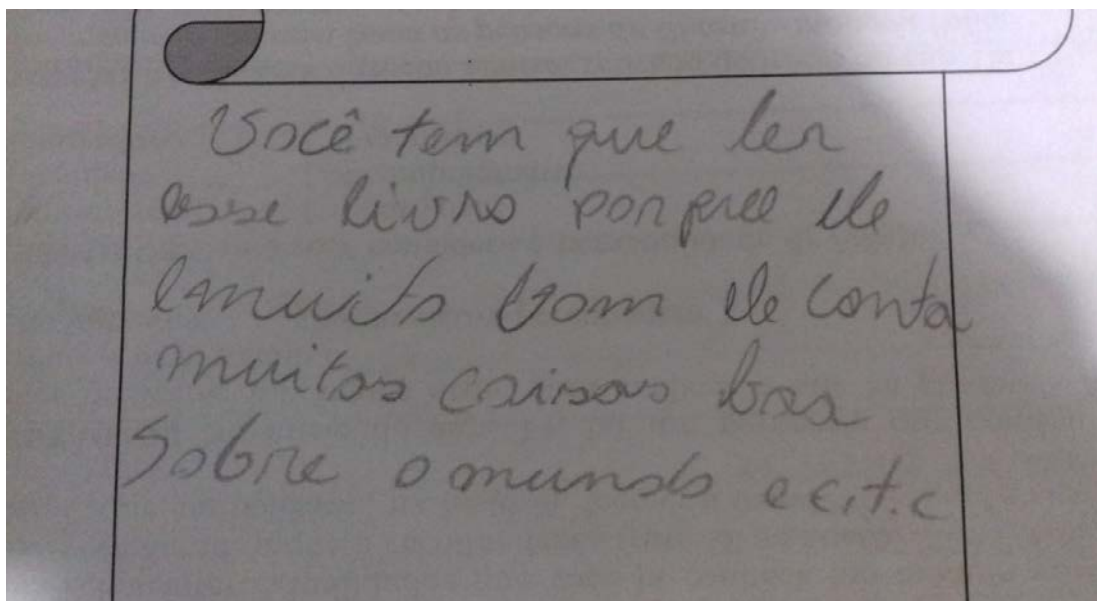 Você tem que ler
esse livro porque ele
emuito bom ele conta
muitas coisas boa
Sobre o mundo e e,t.c